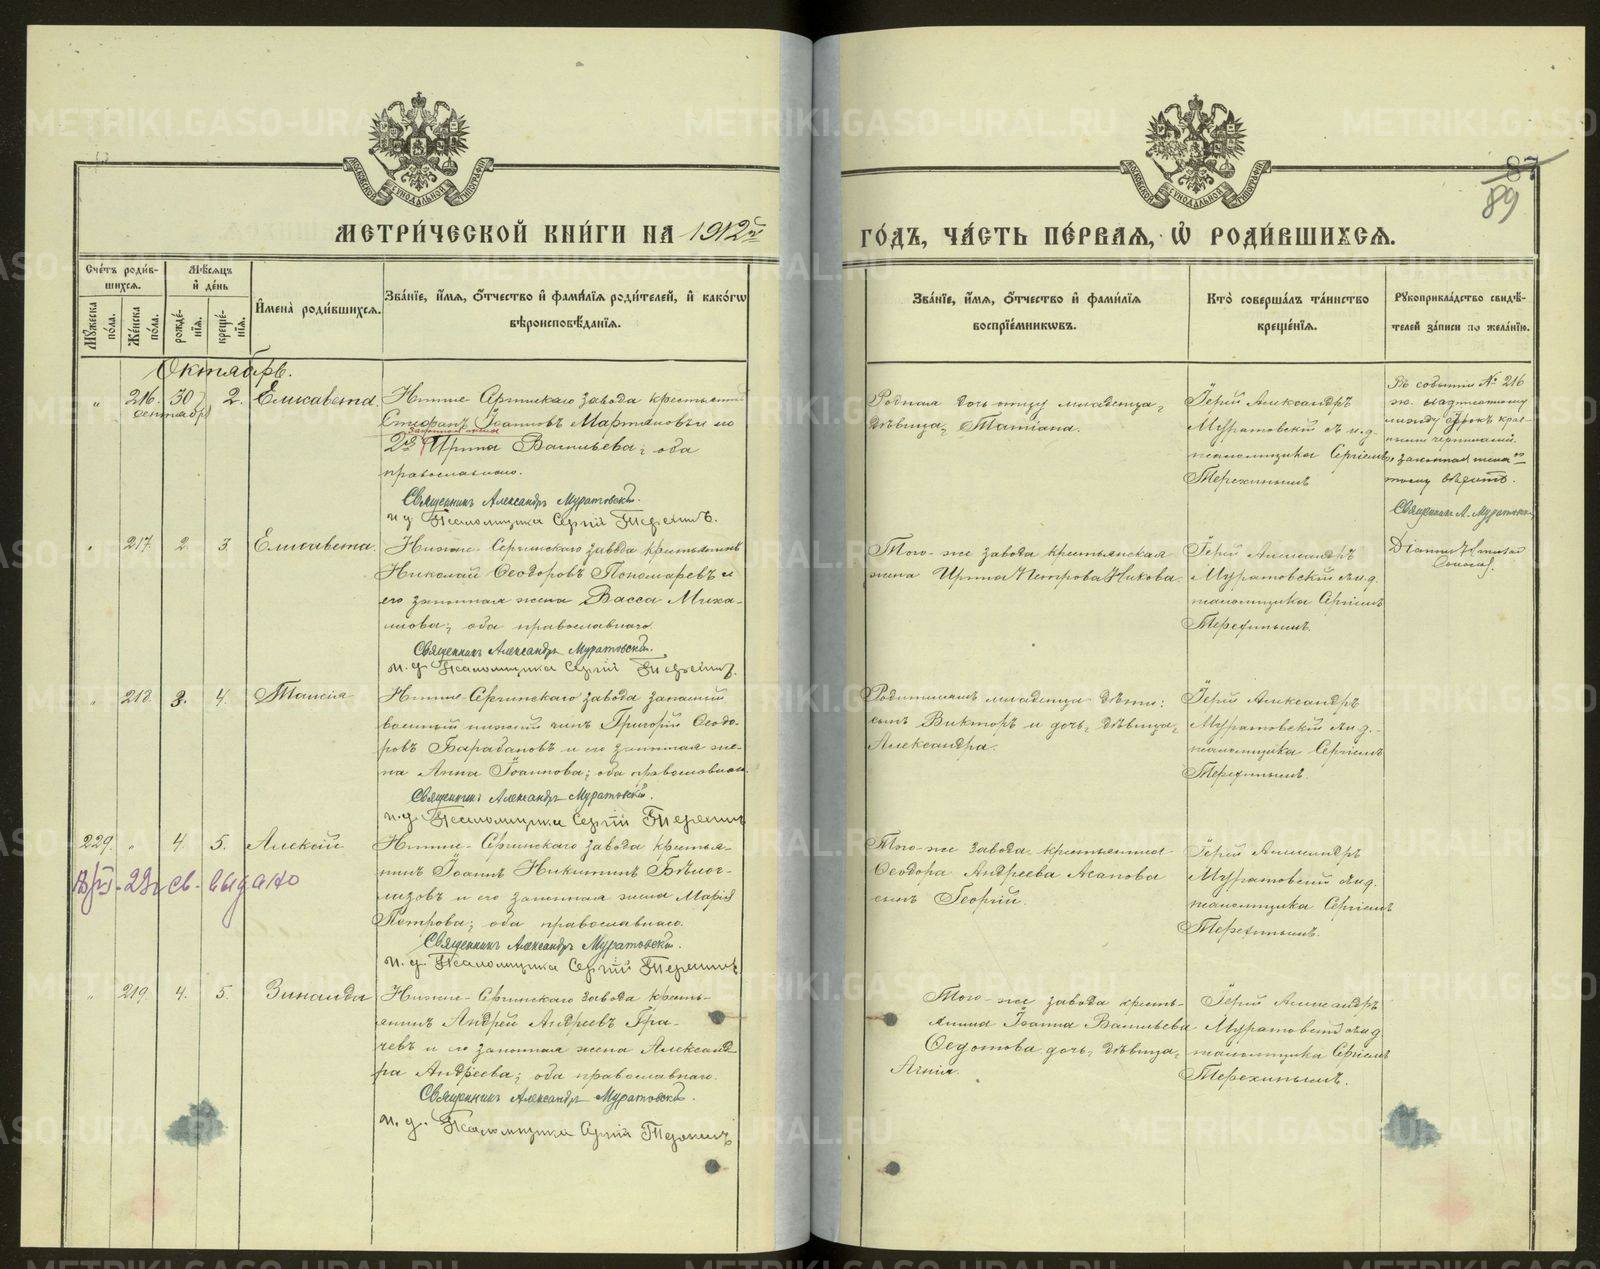 МЕТРИЧЕСКОЙ КНИГИ НА 1912й
ГОДЪ, ЧАСТЬ ПЕРВАЯ, Ѡ РОДИВШИХСЯ.
87
89
Счетъ родившихся.
Мужеска пола.
Женска пола.
Мѣсяцъ и день
рожденія.
крещенія.
Имена родившихся.
Званіе, имя, отчество и фамилія родителей, и какогѡ
вѣроисповѣданія.
Званіе, имя, отчество и фамилія
воспріемниковъ.
Кто совершалъ таинство
крещенія.
Рукоприкладство свидѣ-
телей записи по желанію.
Октябрь.
" 216. 30 сентября 2. Елисавета
Сергинскаго завода
Стефанъ Іоанновъ Мартьяновъ и его
законная жена
2го Ирина Васильева; оба
православнаго.
Священникъ Александръ Муратовскій.
и. д. Псаломщика Сергій Терехинъ.
Родная дочь отцу младенца,
дѣвица, Татіана.
Іерей Александръ
Муратовскій съ и.д.
псаломщика Сергіемъ
Терехинымъ
Въ событіи № 216
законная жена
Священникъ А. Муратовскій
" 217. 2. 3. Елисавета.
Нижне-Сергинскаго завода крестьянинъ
Николай Ѳеодоровъ Пономаревъ и
его законная жена Васса Миха-
илова; оба православнаго.
Священникъ Александръ Муратовскій.
и. д. Псаломщика Сергій Терехинъ.
Того-же завода крестьянская
жена Ирина Петрова
Іерей Александръ
Муратовскій съ и.д.
псаломщика Сергіемъ
Терехинымъ.
" 218. 3. 4. Таисія
Нижне-Сергинскаго завода запасный
военный нижній чинъ Григорій Ѳеодо-
ровъ Барабановъ и его законная же-
на Анна Іоаннова; оба православнаго.
Священникъ Александръ Муратовскій.
и. д. Псаломщика Сергій Терехинъ
младенца дѣти:
сынъ Викторъ и дочь, дѣвица,
Александра.
Іерей Александръ
Муратовскій съ и.д.
псаломщика Сергіемъ
Терехинымъ.
229. " 4. 5. Алексій
св. выдано
Нижне-Сергинскаго завода крестья-
нинъ Іоаннъ Никитинъ Бѣлог-
лазовъ и его законная жена Марія
Петрова; оба православнаго.
Священникъ Александръ Муратовскій.
и. д. Псаломщика Сергій Терехинъ
Того-же завода крестьянина
Ѳеодора Андреева Асанова
сынъ Георгій.
Іерей Александръ
Муратовскій съ и.д.
псаломщика Сергіемъ
Терехинымъ.
" 219. 4. 5. Зинаида
Нижне-Сергинскаго завода кресть-
янинъ Андрей Андреевъ Гра-
чевъ и его законная жена Александ-
ра Андреева; оба православнаго.
Священникъ Александръ Муратовскій.
и. д. Псаломщика Сергій Терехинъ
Того-же завода кресть-
янина Іоанна Васильева
Ѳедотова дочь, дѣвица,
Агнія.
Іерей Александръ
Муратовскій съ и.д.
псаломщика Сергіемъ
Терехинымъ.
METRIKI.GASO-URAL.RU